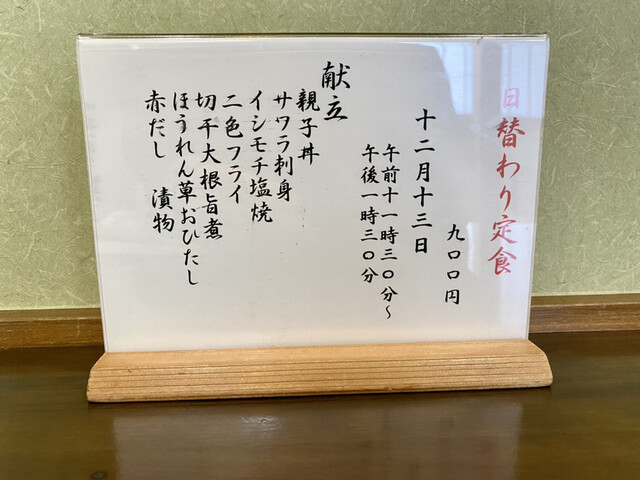 日替わり定食
九〇〇円
十二月十三日
午前十一時三〇分～
午後一時三〇分
献立
親子丼
サワラ刺身
イシモチ塩焼
二色フライ
切干大根旨煮
ほうれん草おひたし
赤だし　漬物